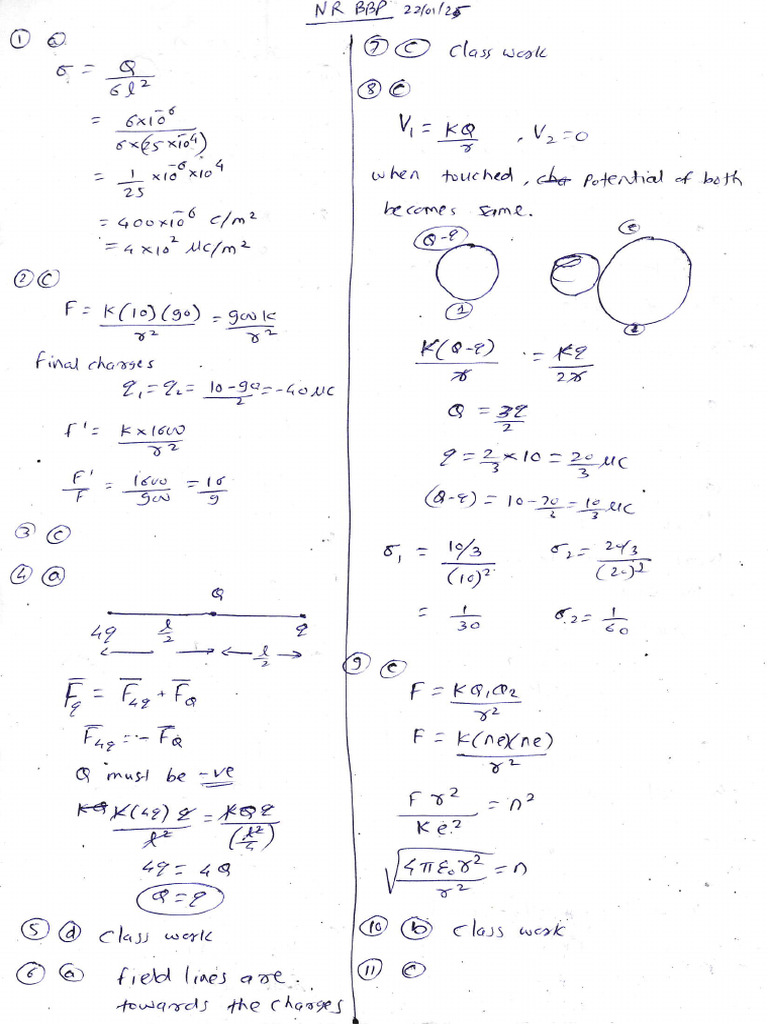 NR BBP 22/01/25
① a
σ = Q / 6l²
= 6×10⁻⁶ / 6×(25×10⁻⁴)
= 1/25 ×10⁻⁶×10⁴
= 400×10⁻⁶ c/m²
= 4×10² μc/m²
② c
F = k(10)(90) / r² = 900k / r²
final charges
q₁ = q₂ = 10-90 / 2 = -40 μc
F' = k×1600 / r²
F'/F = 1600/900 = 16/9
③ c
④ a
Q
4q l/2 q
l/2
F̅q = F̅4q + F̅Q
F̅4q = - F̅Q
Q must be -ve
KQ K(4q) q / l² = KQq / (l²/4)
4q = 4Q
Q = q
⑤ d class work
⑥ a field lines are
towards the charges
⑦ c class work
⑧ c
V₁ = KQ/r , V₂ = 0
when touched, cha potential of both
becomes same.
Q-q
① 2
K(Q-q) / r = Kq / 2r
Q = 3q/2
q = 2/3 × 10 = 20/3 μc
(Q-q) = 10 - 20/3 = 10/3 μc
σ₁ = 10/3 / (10)² σ₂ = 20/3 / (20)²
= 1/30 σ₂ = 1/60
⑨ c
F = KQ₁Q₂ / r²
F = K(ne)(ne) / r²
F r² / K e² = n²
√(4πε₀r² / r²) = n
⑩ b class work
⑪ c